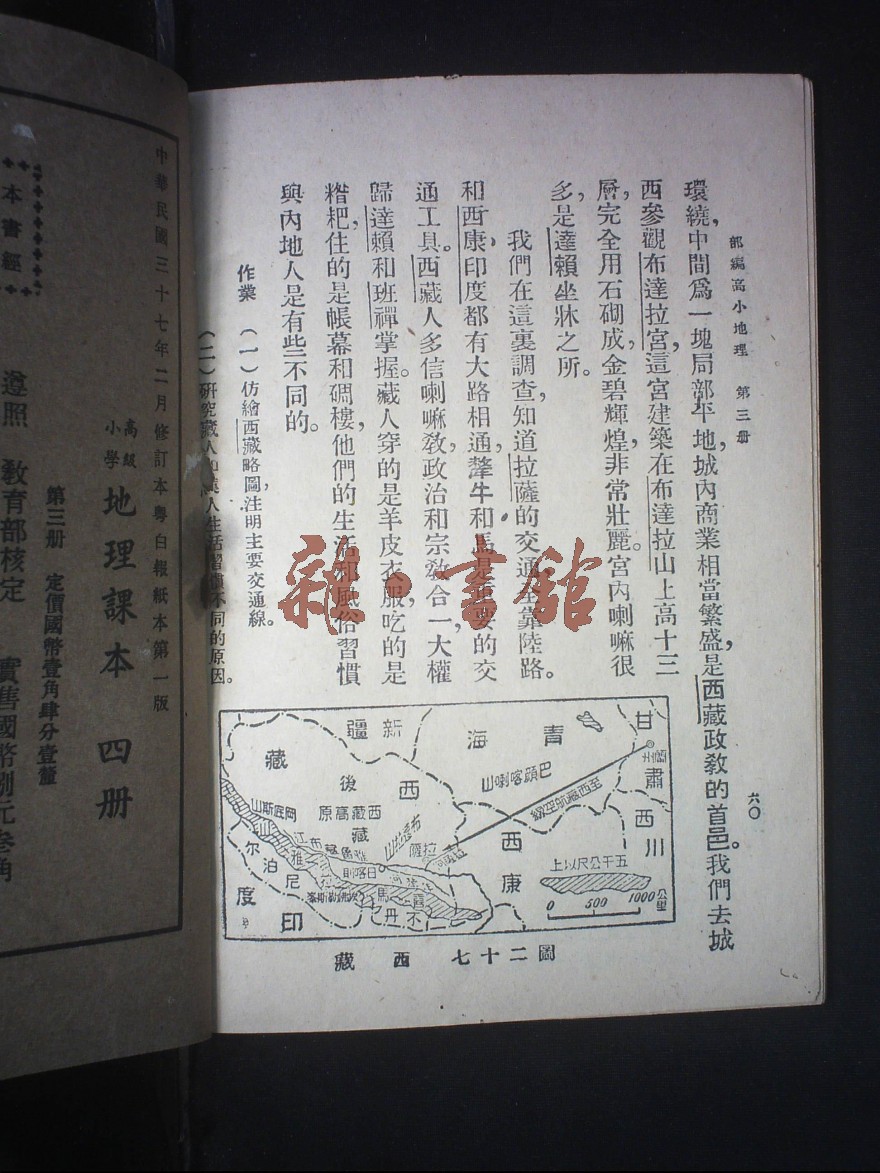 部編高小地理　第三册
六〇
環繞，中間爲一塊局部平地，城內商業相當繁盛，是西藏政敎的首邑。我們去城
西參觀布達拉宮，這宮建築在布達拉山上，高十三
層，完全用石砌成，金碧輝煌，非常壯麗。宮內喇嘛很
多，是達賴坐牀之所。
我們在這裏調查，知道拉薩的交通全靠陸路。
和西康，印度都有大路相通，犛牛和馬是重要的交
通工具。西藏人多信喇嘛敎，政治和宗敎合一，大權
歸達賴和班禪掌握。藏人穿的是羊皮衣服，吃的是
糌粑，住的是帳幕和碉樓，他們的生活和風俗習慣
與內地人是有些不同的。
作業　（一）仿繪西藏略圖，注明主要交通線。
（二）研究藏人和漢人生活習慣不同的原因。
甘肅
青海
新疆
西康
川西
西藏
後藏
西藏高原
巴顏喀喇山
至西藏航空線
岡底斯山
拉薩
日喀則
尼泊尔
不丹
印度
五千公尺以上
0　500　1000公里
圖二十七　西藏
雜·書舘
中華民國三十七年二月修訂本粵白報紙本第一版
高級小學　地理課本　四册
第三册　定價國幣壹角肆分壹釐
遵照　敎育部核定　實售國幣捌元叁角
本書經